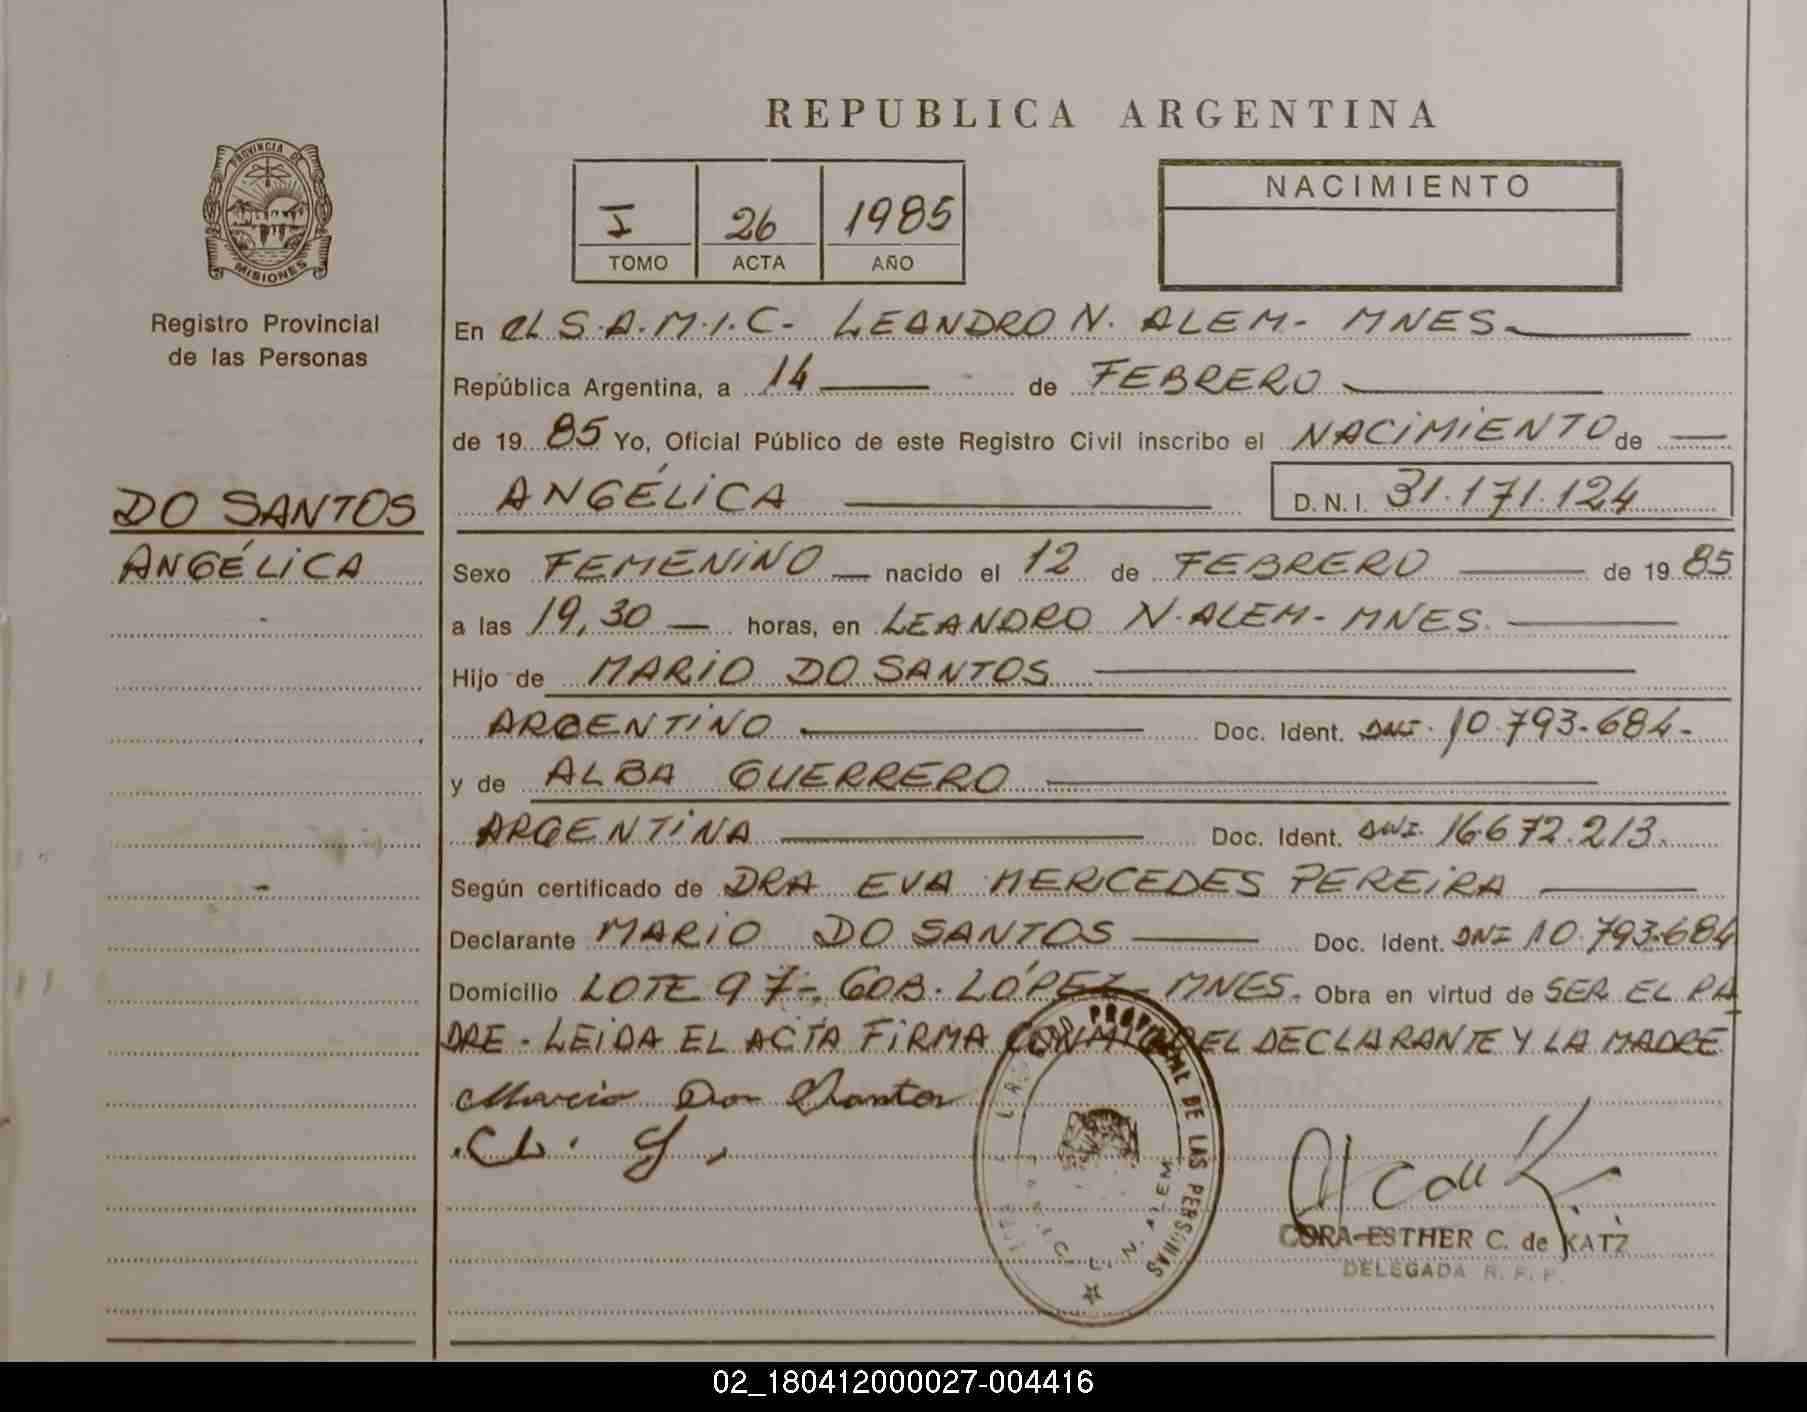 REPUBLICA ARGENTINA
PROVINCIA DE
MISIONES
Registro Provincial
de las Personas
DO SANTOS
ANGÉLICA
I 26 1985
TOMO ACTA AÑO
NACIMIENTO
En el S.A.M.I.C- LEANDRO N. ALEM- MNES.
República Argentina, a 14 de FEBRERO
de 19 85 Yo, Oficial Público de este Registro Civil inscribo el NACIMIENTO de
ANGÉLICA D.N.I. 31.171.124
Sexo FEMENINO nacido el 12 de FEBRERO de 19 85
a las 19,30 horas, en LEANDRO N. ALEM- MNES.
Hijo de MARIO DO SANTOS
ARGENTINO Doc. Ident. DNI. 10.793.684-
y de ALBA GUERRERO
ARGENTINA Doc. Ident. DNI. 16.672.213.
Según certificado de DRA EVA MERCEDES PEREIRA
Declarante MARIO DO SANTOS Doc. Ident. DNI 10.793.684
Domicilio LOTE 97-, GOB. LÓPEZ- MNES. Obra en virtud de SER EL PA
DRE - LEIDA EL ACTA FIRMA CONMIGO EL DECLARANTE Y LA MADRE
PROVINCIAL DE LAS PERSONAS
L. N. ALEM
CORA ESTHER C. de KATZ
DELEGADA R. P. P.
02_180412000027-004416